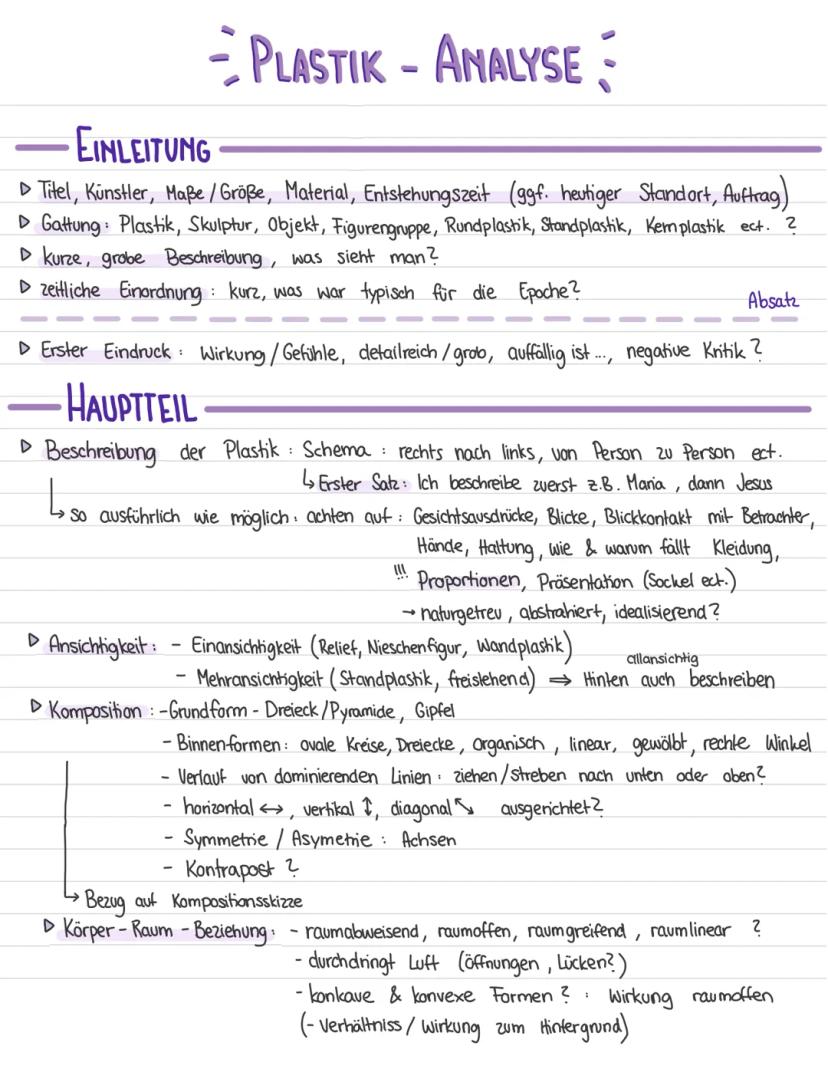 PLASTIK - ANALYSE
EINLEITUNG
▷ Titel, Künstler, Maße / Größe, Material, Entstehungszeit (ggf. heutiger Standort, Auftrag)
▷ Gattung: Plastik, Skulptur, Objekt, Figurengruppe, Rundplastik, Standplastik, Kernplastik ect. ?
▷ kurze, grobe Beschreibung, was sieht man?
▷ zeitliche Einordnung: kurz, was war typisch für die Epoche?
Absatz
▷ Erster Eindruck: Wirkung / Gefühle, detailreich / grob, auffällig ist ..., negative Kritik?
HAUPTTEIL
▷ Beschreibung der Plastik: Schema: rechts nach links, von Person zu Person ect.
↳ Erster Satz: Ich beschreibe zuerst z.B. Maria, dann Jesus
↳ so ausführlich wie möglich: achten auf: Gesichtsausdrücke, Blicke, Blickkontakt mit Betrachter,
Hände, Haltung, wie & warum fällt Kleidung,
!!! Proportionen, Präsentation (Sockel ect.)
→ naturgetreu, abstrahiert, idealisierend?
▷ Ansichtigkeit: - Einansichtigkeit (Relief, Nieschenfigur, Wandplastik)
allansichtig
- Mehransichtigkeit (Standplastik, freistehend) ⇒ Hinten auch beschreiben
▷ Komposition: - Grundform - Dreieck / Pyramide, Gipfel
- Binnenformen: ovale Kreise, Dreiecke, organisch, linear, gewölbt, rechte Winkel
- Verlauf von dominierenden Linien: ziehen / streben nach unten oder oben?
- horizontal ↔, vertikal ↕, diagonal ⤡ ausgerichtet?
- Symmetrie / Asymetrie: Achsen
- Kontrapost?
↳ Bezug auf Kompositionsskizze
▷ Körper - Raum - Beziehung: - raumabweisend, raumoffen, raumgreifend, raumlinear ?
- durchdringt Luft (Öffnungen, Lücken?)
- konkave & konvexe Formen?: Wirkung raumoffen
(- Verhältniss / Wirkung zum Hintergrund)